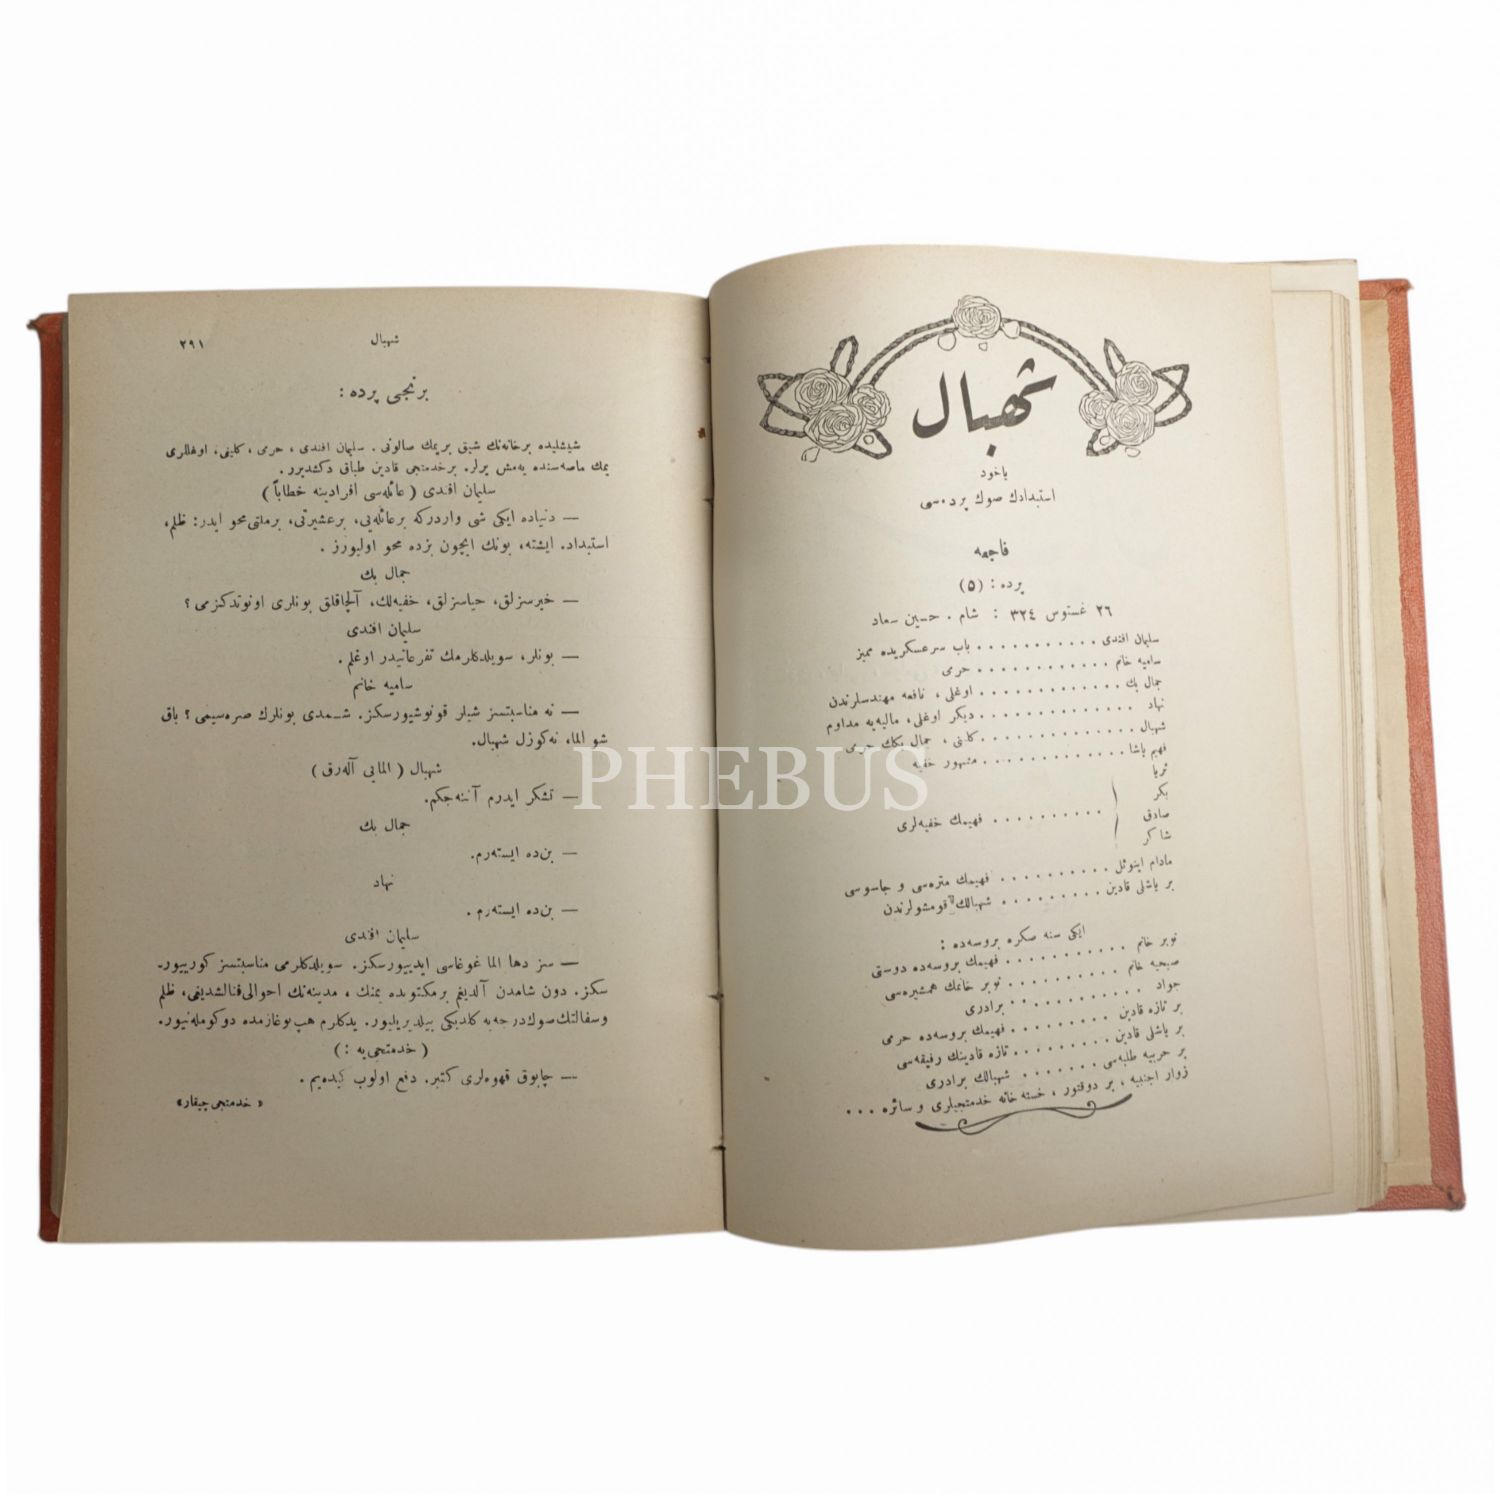 شهبال
یاخود
استبدادك صوك پرده‌سی
فاجعه
پرده : (٥)
٢٦ غستوس ٣٢٤ : شام . حسین سعاد
سلیمان افندی . . . . . . . . . . . باب سرعسکریده ممیز
سامیه خانم . . . . . . . . . . . . حرمی
جمال بك . . . . . . . . . . . . . اوغلی ، نافعه مهندسلرندن
نهاد . . . . . . . . . . . . . . دیکر اوغلی، مالیه‌یه مداوم
شهبال . . . . . . . . . . . . . . کلینی ، جمال بکك حرمی
فهیم پاشا . . . . . . . . . . . . . مشهور خفیه
ثریا
بکر
صادق . . . . . . . . . . فهیمك خفیه‌لری
شاکر
مادام اینوئل . . . . . . . . . . فهیمك متره‌سی و جاسوسی
بر یاشلی قادین . . . . . . . . . شهبالك قومشولرندن
ایکی سنه صکره بروسه‌ده :
نوبر خانم . . . . . . . . . . . فهیمك بروسه‌ده دوستی
صبحیه خانم . . . . . . . . . نوبر خانمك همشیره‌سی
جواد . . . . . . . . . . . . برادری
بر تازه قادین . . . . . . . . . فهیمك بروسه‌ده حرمی
بر یاشلی قادین . . . . . . . . . تازه قادینك رفیقه‌سی
بر حربیه طلبه‌سی . . . . . . . شهبالك برادری
زوار اجنبیه ، بر دوقتور ، خسته خانه خدمتجیلری و سائره . . .
شهبال ٢٩١
برنجی پرده :
شیشلیده بر خانه‌نك شیق بر یمك صالونی . سلیمان افندی ، حرمی ، کلینی ، اوغللری
یمك ماصه‌سنده یه‌مش یرلر. بر خدمتجی قادین طباق دکشدیرر.
سلیمان افندی ( عائله‌سی افرادینه خطاباً )
— دنیاده ایکی شی واردرکه بر عائله‌یی، بر عشیرتی، بر ملتی محو ایدر: ظلم،
استبداد. ایشته، بونك ایچون بزده محو اولیورز .
جمال بك
— خیرسزلق، حیاسزلق، خفیه‌لك، آلچاقلق بونلری اونوتدکزمی ؟
سلیمان افندی
— بونلر، سویلدکلرمك تفرعاتیدر اوغلم.
سامیه خانم
— نه مناسبتسز شیلر قونوشیورسکز. شمدی بونلرك صره‌سیمی ؟ باق
شو الما، نه‌کوزل شهبال.
شهبال ( المایی آله‌رق )
— تشکر ایدرم آننه‌جکم.
جمال بك
— بن‌ده ایسته‌رم.
نهاد
— بن‌ده ایسته‌رم .
سلیمان افندی
— سز دها الما غوغاسی ایدییورسکز. سویلدکلرمی مناسبتسز کورییور-
سکز. دون شامدن آلدیغم بر مکتوبده یمنك ، مدینه‌نك احوالی فنالشدیغی، ظلم
و سفالتك صوك درجه‌یه کلدیکی بیلدیریلیور. یدکلرم هپ بوغازمده دوکومله‌نیور.
( خدمتجی‌یه : )
— چابوق قهوه‌لری کتیر. دفع اولوب کیده‌یم .
« خدمتجی چیقار»
PHEBUS